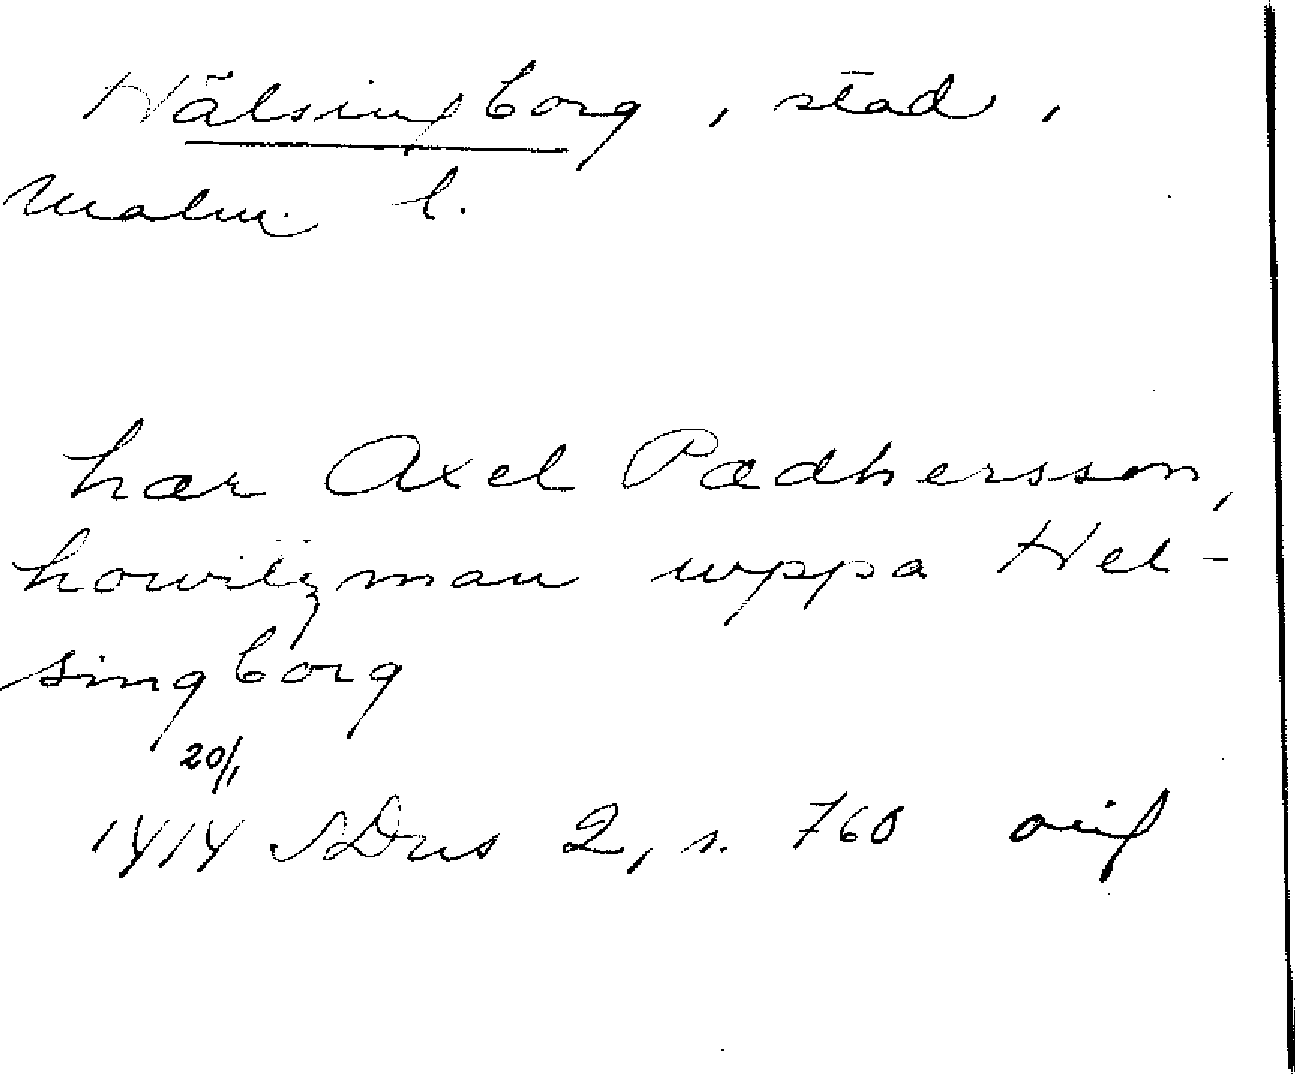 Hälsingborg, stad,
Malm. l.
hær Axel Pædhersson,
howitzman uppa Hel-
singborg
20/1
1414 SDns 2, s. 760 orig